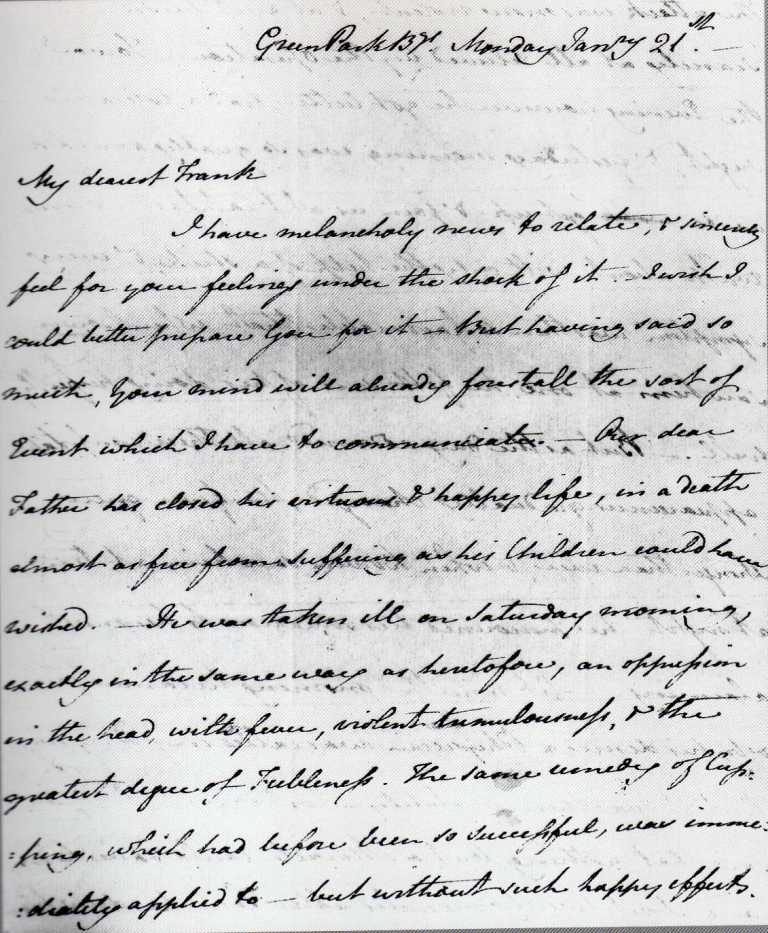 Green Park Bgs. Monday Janry 21st. —
My dearest Frank
I have melancholy news to relate, & sincerely
feel for your feelings under the shock of it. — I wish I
could better prepare You for it — But having said so
much, Your mind will already forestall the sort of
Event which I have to communicate. — Our dear
Father has closed his virtuous & happy life, in a death
almost as free from suffering as his Children could have
wished. — He was taken ill on Saturday morning,
exactly in the same way as heretofore, an oppression
in the head, with fever, violent tremulousness, & the
greatest degree of Feebleness. The same remedy of Cup:
:ping, which had before been so successful, was imme:
:diately applied to — but without such happy effects.